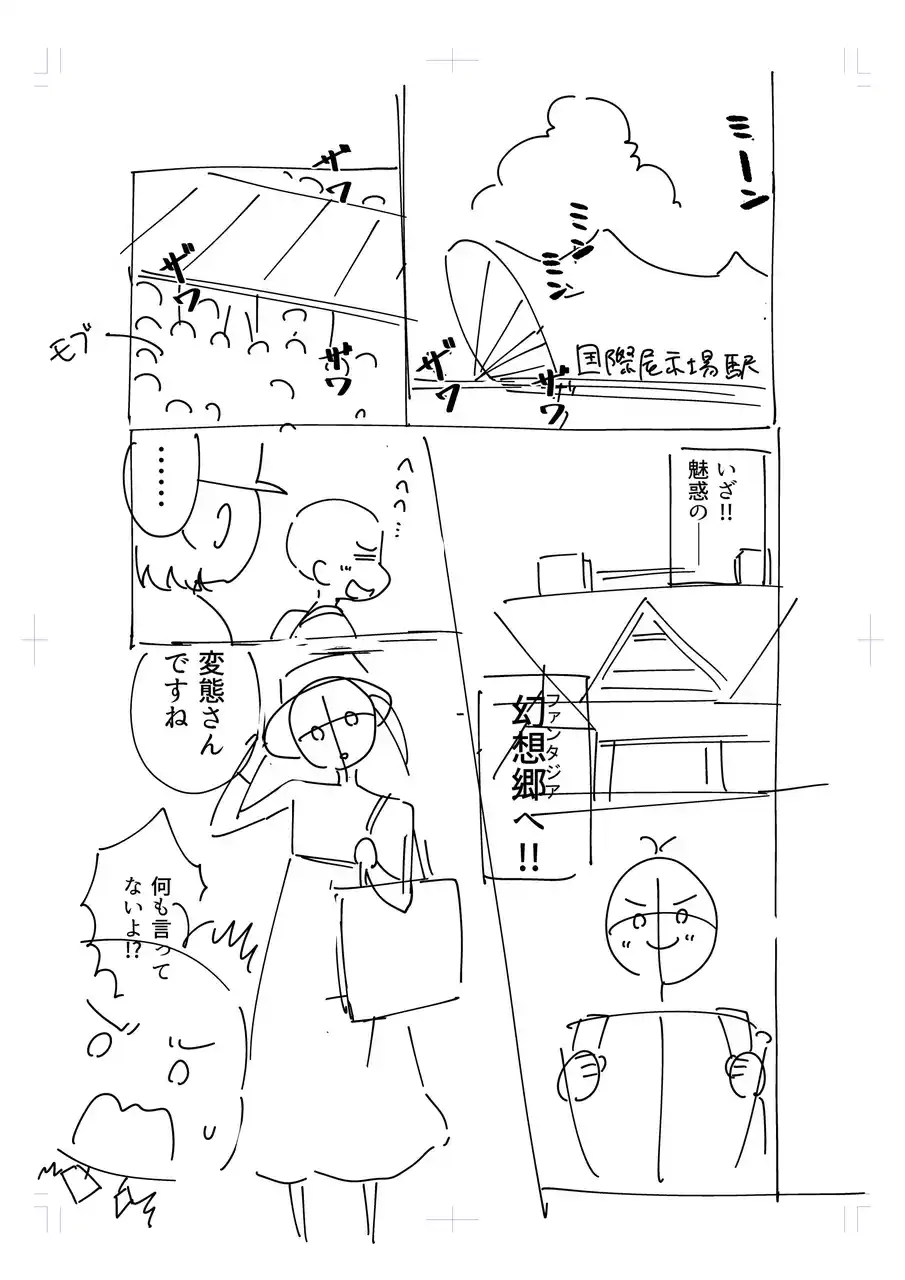 ミーン
ミミン
ミミン
国際展示場駅
ザワ
ザワ
ザワ
ザワ
ザワ
モブ
いざ!!
魅惑の──
幻想郷へ!!
ファンタジア
へへへ…
……
変態さん
ですね
何も言って
ないよ!?